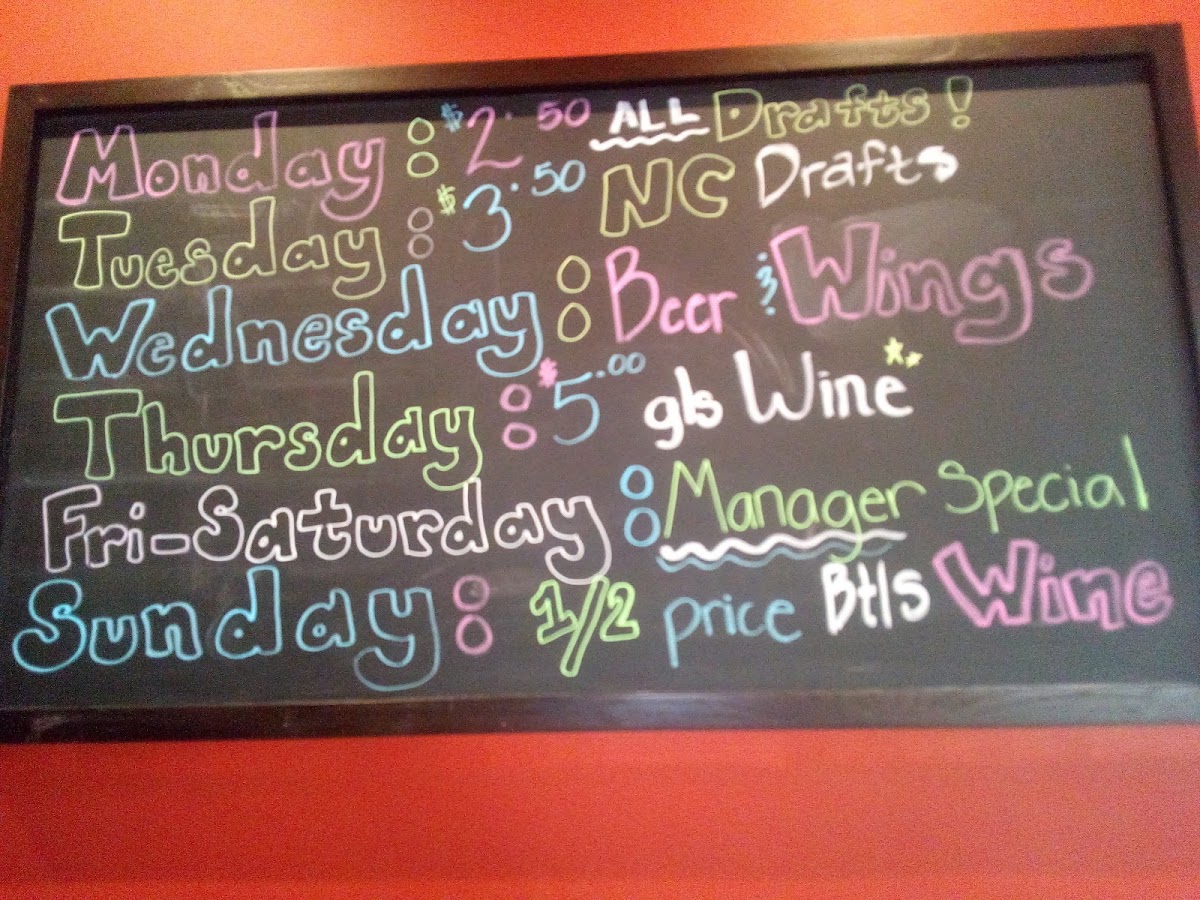 Monday : $2.50 ALL Drafts!
Tuesday : $3.50 NC Drafts
Wednesday : Beer & Wings
Thursday : $5.00 gls Wine**
Fri-Saturday : Manager Special
Sunday : 1/2 price Btls Wine